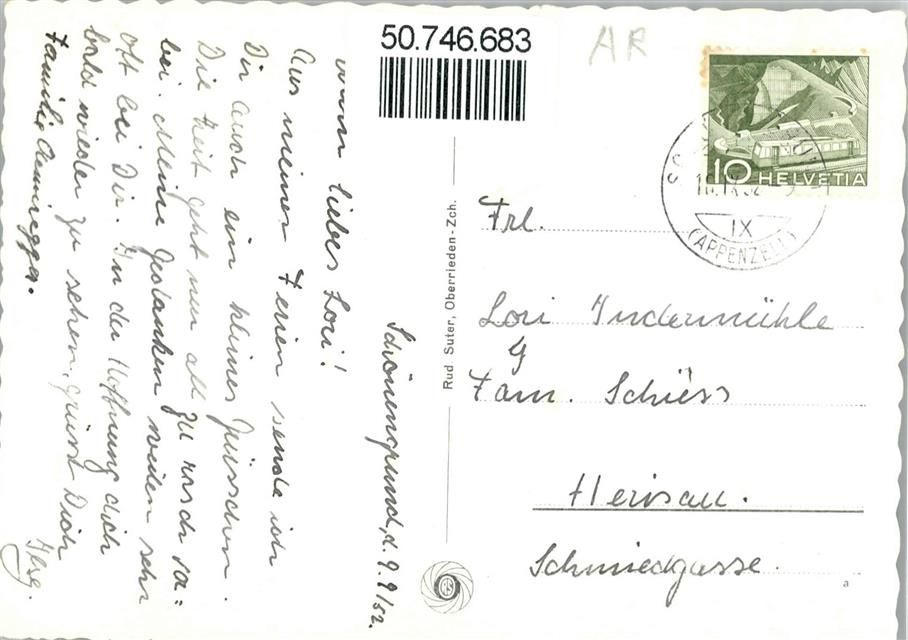 50.746.683
AR
10 HELVETIA
IX
(APPENZELL)
Schönengrund, d. 9.9/52.
mein liebes Lori!
Aus meinen Ferien sende ich
Dir auch ein kleines Grüsschen.
Die Zeit geht nur all zu rasch vor=
bei. Meine Gedanken weilen sehr
oft bei Dir. In der Hoffnung dich
bald wieder zu sehen, grüsst Dich
Familie
Rud. Suter, Oberrieden-Zch.
RS
Frl.
Lori Indermühle
Fam. Schiess
Herisau.
Schmiedgasse.
a